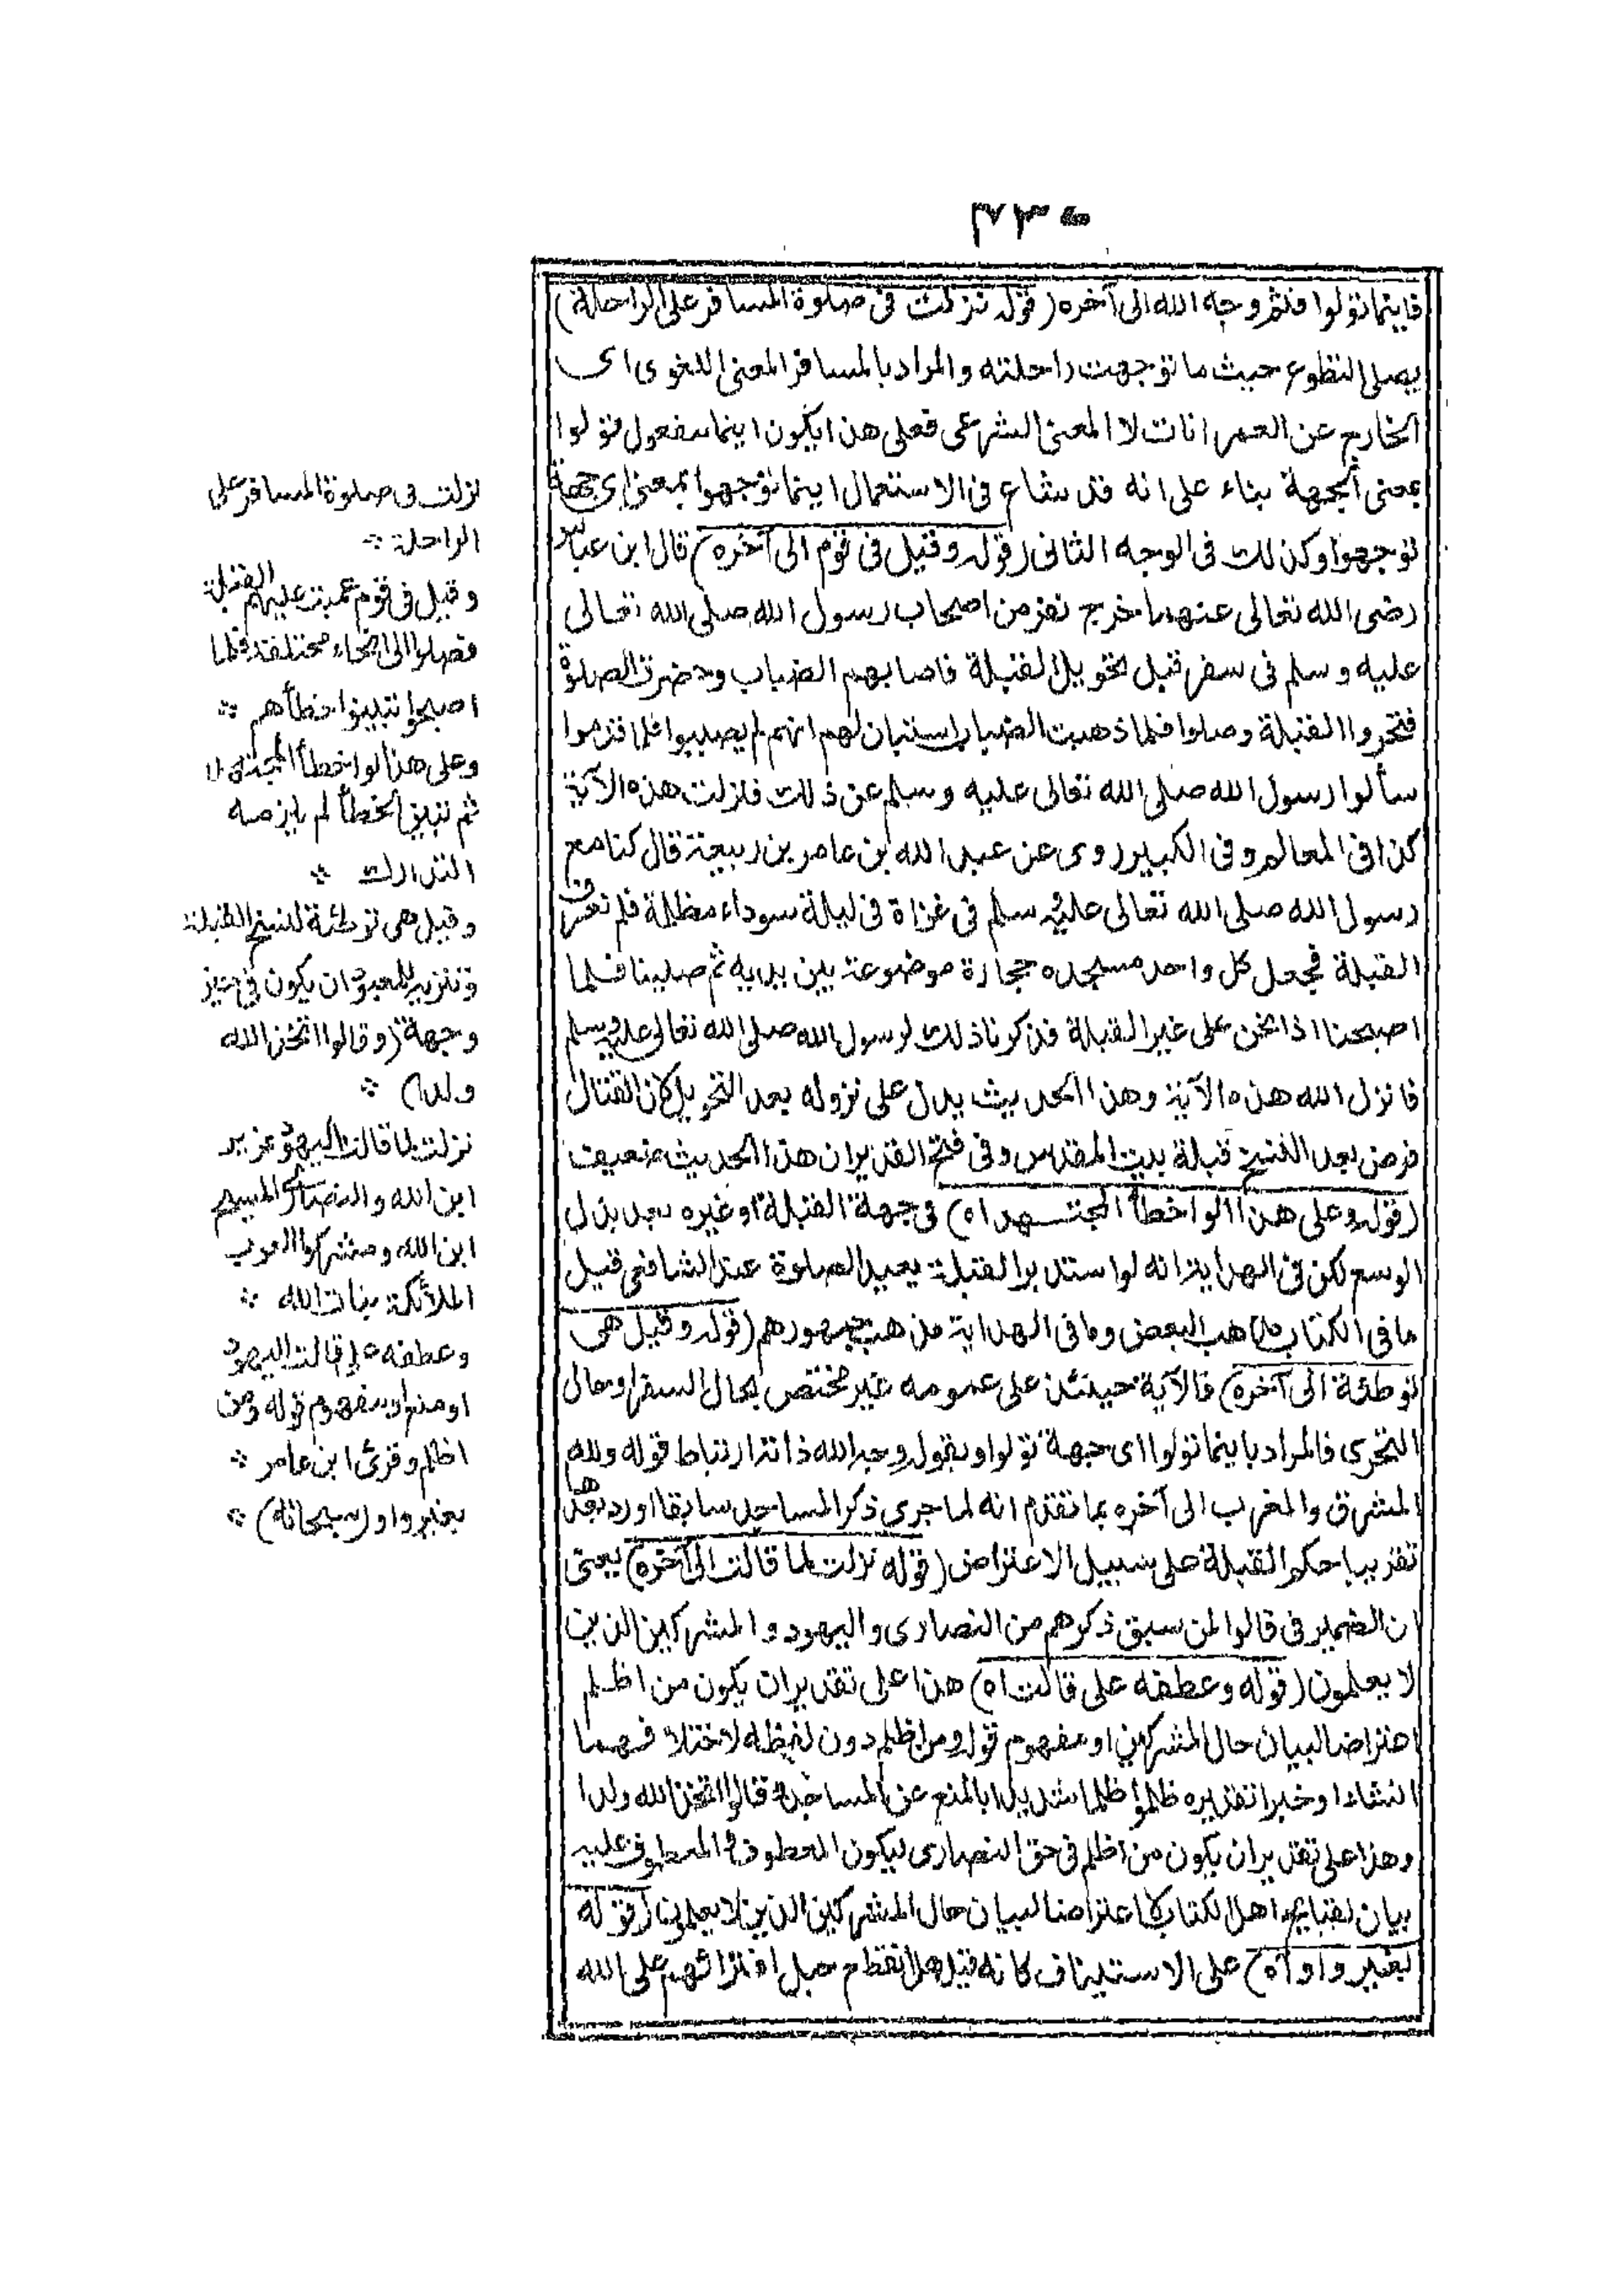 فاينما تولوا فثم وجه الله الى آخره (قوله نزلت فى صلوة المسافر على الراحلة)
يصلى التطوع حيث ما توجهت راحلته والمراد بالمسافر المعنى اللغوى اى
الخارج عن العمرانات لا المعنى الشرعى فعلى هذا يكون اينما مفعول تولوا
بمعنى الجهة بناء على انه قد شاع فى الاستعمال اينما توجهوا بمعنى اى جهة
توجهوا وكذلك فى الوجه الثانى (قوله وقيل فى قوم الى آخره) قال ابن عباس
رضى الله تعالى عنهما خرج نفر من اصحاب رسول الله صلى الله تعالى
عليه وسلم فى سفر قبل تحويل القبلة فاصابهم الضباب وحضرت الصلوة
فتحروا القبلة وصلوا فلما ذهبت الضباب استبان لهم انهم لم يصيبوا فلما قدموا
سألوا رسول الله صلى الله تعالى عليه وسلم عن ذلك فنزلت هذه الآية
كذا فى المعالم وفى الكبير روى عن عبد الله بن عامر بن ربيعة قال كنا مع
رسول الله صلى الله تعالى عليه وسلم فى غزاة فى ليلة سوداء مظلمة فلم نعرف
القبلة فجعل كل واحد مسجده حجارة موضوعة بين يديه ثم صلينا فلما
اصبحنا اذا نحن على غير القبلة فذكرنا ذلك لرسول الله صلى الله تعالى عليه وسلم
فانزل الله هذه الآية وهذا الحديث يدل على نزوله بعد التحويل لان القتال
فرض بعد النسخ قبلة بيت المقدس وفى فتح القدير ان هذا الحديث ضعيف
(قوله وعلى هذا لو اخطأ المجتهد اه) فى جهة القبلة او غيره بعد بذل
الوسع لكن فى الهداية انه لو استدبر القبلة يعيد الصلوة عند الشافعى قيل
ما فى الكتاب مذهب البعض وما فى الهداية مذهب جمهورهم (قوله وقيل هى
توطئة الى آخره) فالآية حينئذ على عمومه غير مختص بحال السفر او حال
التحرى فالمراد باينما تولوا اى جهة تولوا وبقوله وجه الله ذاته ارتباط قوله ولله
المشرق والمغرب الى آخره بما تقدم انه لما جرى ذكر المساجد سابقا اورد بعدها
تقريبا حكم القبلة على سبيل الاعتراض (قوله نزلت لما قالت الى آخره) يعنى
ان الضمير فى قالوا لمن سبق ذكرهم من النصارى واليهود والمشركين الذين
لا يعلمون (قوله وعطفه على قالت اه) هذا على تقدير ان يكون من اظلم
اعتراضا لبيان حال المشركين او مفهوم قوله ومن اظلم دون لفظه لاختلافهما
انشاء او خبرا تقديره ظلموا ظلما شديدا بالمنع عن المساجد وقالوا اتخذ الله ولدا
وهذا على تقدير ان يكون من اظلم فى حق النصارى ليكون المعطوف والمعطوف عليه
بيان لقبايح اهل الكتاب لا اعتراضا لبيان حال المشركين الذين لا يعلمون (قوله
بغير واو اه) على الاستيناف كانه قيل هل انقطع حبل افترائهم على الله
نزلت فى صلوة المسافر على
الراحلة *
وقيل فى قوم عميت عليهم القبلة
فصلوا الى انحاء مختلفة فلما
اصبحوا تبينوا خطأهم *
وعلى هذا لو اخطأ المجتهد
ثم تبين الخطأ لم يلزمه
التدارك *
وقيل هى توطئة لنسخ القبلة
وتنزيه للمعبود ان يكون فى حيز
وجهة (وقالوا اتخذ الله
ولدا) *
نزلت لما قالت اليهود عزير
ابن الله والنصارى المسيح
ابن الله ومشركوا العرب
الملائكة بنات الله *
وعطفه على قالت اليهود
او منع او مفهوم قوله ومن
اظلم وقرئ ابن عامر *
بغير واو (سبحانه) *